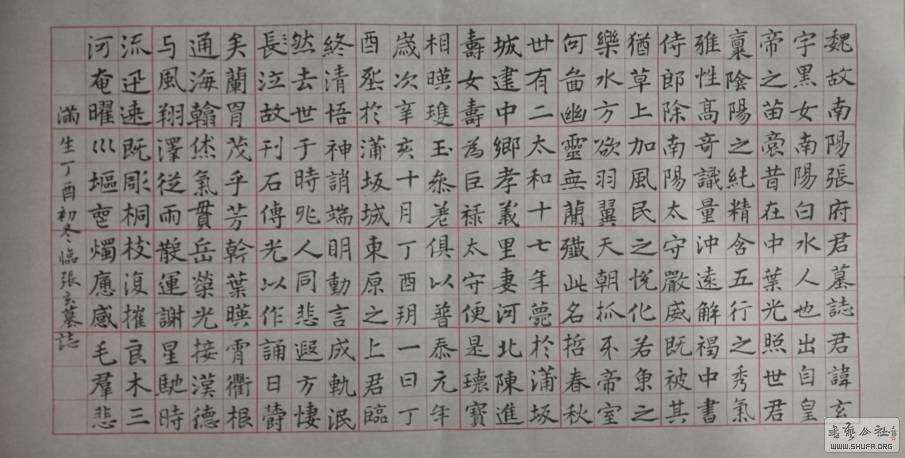 魏故南陽張府君墓誌君諱玄
字黑女南陽白水人也出自皇
帝之苗裔昔在中葉光照世君
稟陰陽之純精含五行之秀氣
雅性高奇識量沖遠解褐中書
侍郎除南陽太守嚴威既被其
猶草上加風民之悅化若魚之
樂水方欲羽翼天朝抓牙帝室
何啚幽靈無蘭殲此名哲春秋
卅有二太和十七年薨於蒲坂
城建中鄉孝義里妻河北陳進
壽女壽為巨祿太守便是瓌寶
相暎瓊玉參差俱以普泰元年
歲次辛亥十月丁酉玥一日丁
酉塟於蒲坂城東原之上君臨
終清悟神誚端明動言成軌泯
然去世于時兆人同悲遐方悽
長泣故刊石傳光以作誦曰欝
矣蘭胄茂乎芳幹葉暎霄衢根
通海翰烋氣貫岳榮光接漢德
与風翔澤從雨散運謝星馳時
流迅速既彫桐枝復摧良木三
河奄曜巛塸喪燭感毛羣悲
滿生丁酉初冬臨張玄墓誌
书艺公社
WWW.SHUFA.ORG